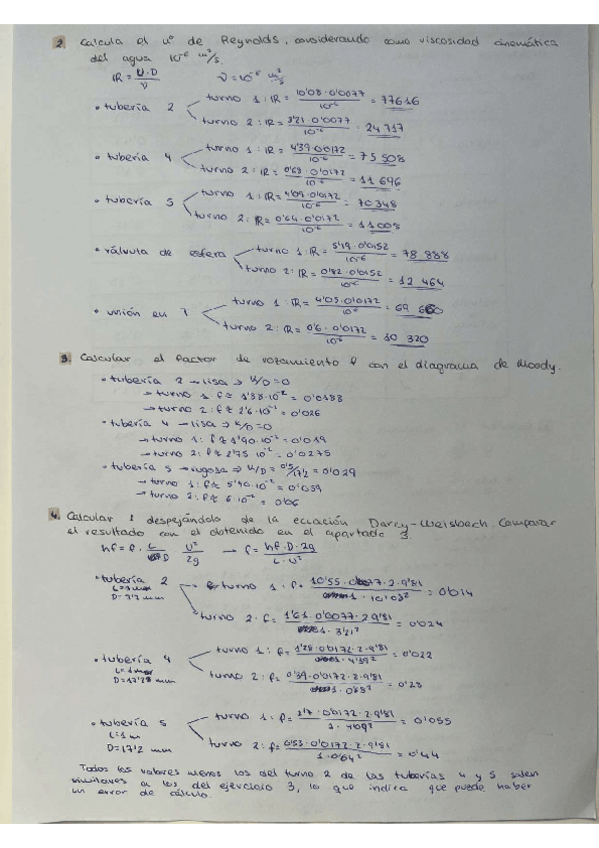 2. Calcula el nº de Reynolds, considerando como viscosidad cinemática
del agua 10⁻⁶ m²/s.
IR = U·D/ν    ν = 10⁻⁶ m²/s
• tubería 2
turno 1: IR = 10'08·0'0077/10⁻⁶ = 77616
turno 2: IR = 3'21·0'0077/10⁻⁶ = 24717
• tubería 4
turno 1: IR = 4'39·0'0172/10⁻⁶ = 75508
turno 2: IR = 0'68·0'0172/10⁻⁶ = 11696
• tubería 5
turno 1: IR = 4'09·0'0172/10⁻⁶ = 70348
turno 2: IR = 0'64·0'0172/10⁻⁶ = 11008
• válvula de esfera
turno 1: IR = 5'19·0'0152/10⁻⁶ = 78888
turno 2: IR = 0'82·0'0152/10⁻⁶ = 12464
• unión en T
turno 1: IR = 4'05·0'0172/10⁻⁶ = 69660
turno 2: IR = 0'6·0'0172/10⁻⁶ = 10320
3. Calcular el factor de rozamiento f con el diagrama de Moody.
• tubería 2 → lisa ⇒ K/D = 0
→ turno 1: f ≈ 1'88·10⁻² = 0'0188
→ turno 2: f ≈ 2'6·10⁻² = 0'026
• tubería 4 → lisa ⇒ K/D = 0
→ turno 1: f ≈ 1'90·10⁻² = 0'019
→ turno 2: f ≈ 2'75·10⁻² = 0'0275
• tubería 5 → rugosa ⇒ K/D = 0'5/17'2 = 0'029
→ turno 1: f ≈ 5'90·10⁻² = 0'059
→ turno 2: f ≈ 6·10⁻² = 0'06
4. Calcular f despejándolo de la ecuación Darcy-Weisbach. Comparar
el resultado con el obtenido en el apartado 3.
hf = f · L/D · U²/2g → f = hf·D·2g/L·U²
• tubería 2
D = 7'7 mm
turno 1: f = 10'55·0'0077·2·9'81/1·10'08² = 0'014
turno 2: f = 1'61·0'0077·2·9'81/1·3'21² = 0'024
• tubería 4
L = 1 m
turno 1: f = 1'28·0'0172·2·9'81/1·4'39² = 0'022
turno 2: f = 0'39·0'0172·2·9'81/1·0'68² = 0'28
• tubería 5
L = 1 m
D = 17'2 mm
turno 1: f = 2'7·0'0172·2·9'81/1·4'09² = 0'055
turno 2: f = 0'53·0'0172·2·9'81/1·0'64² = 0'44
Todos los valores menos los del turno 2 de las tuberías 4 y 5 salen
similares a los del ejercicio 3, lo que indica que puede haber
un error de cálculo.